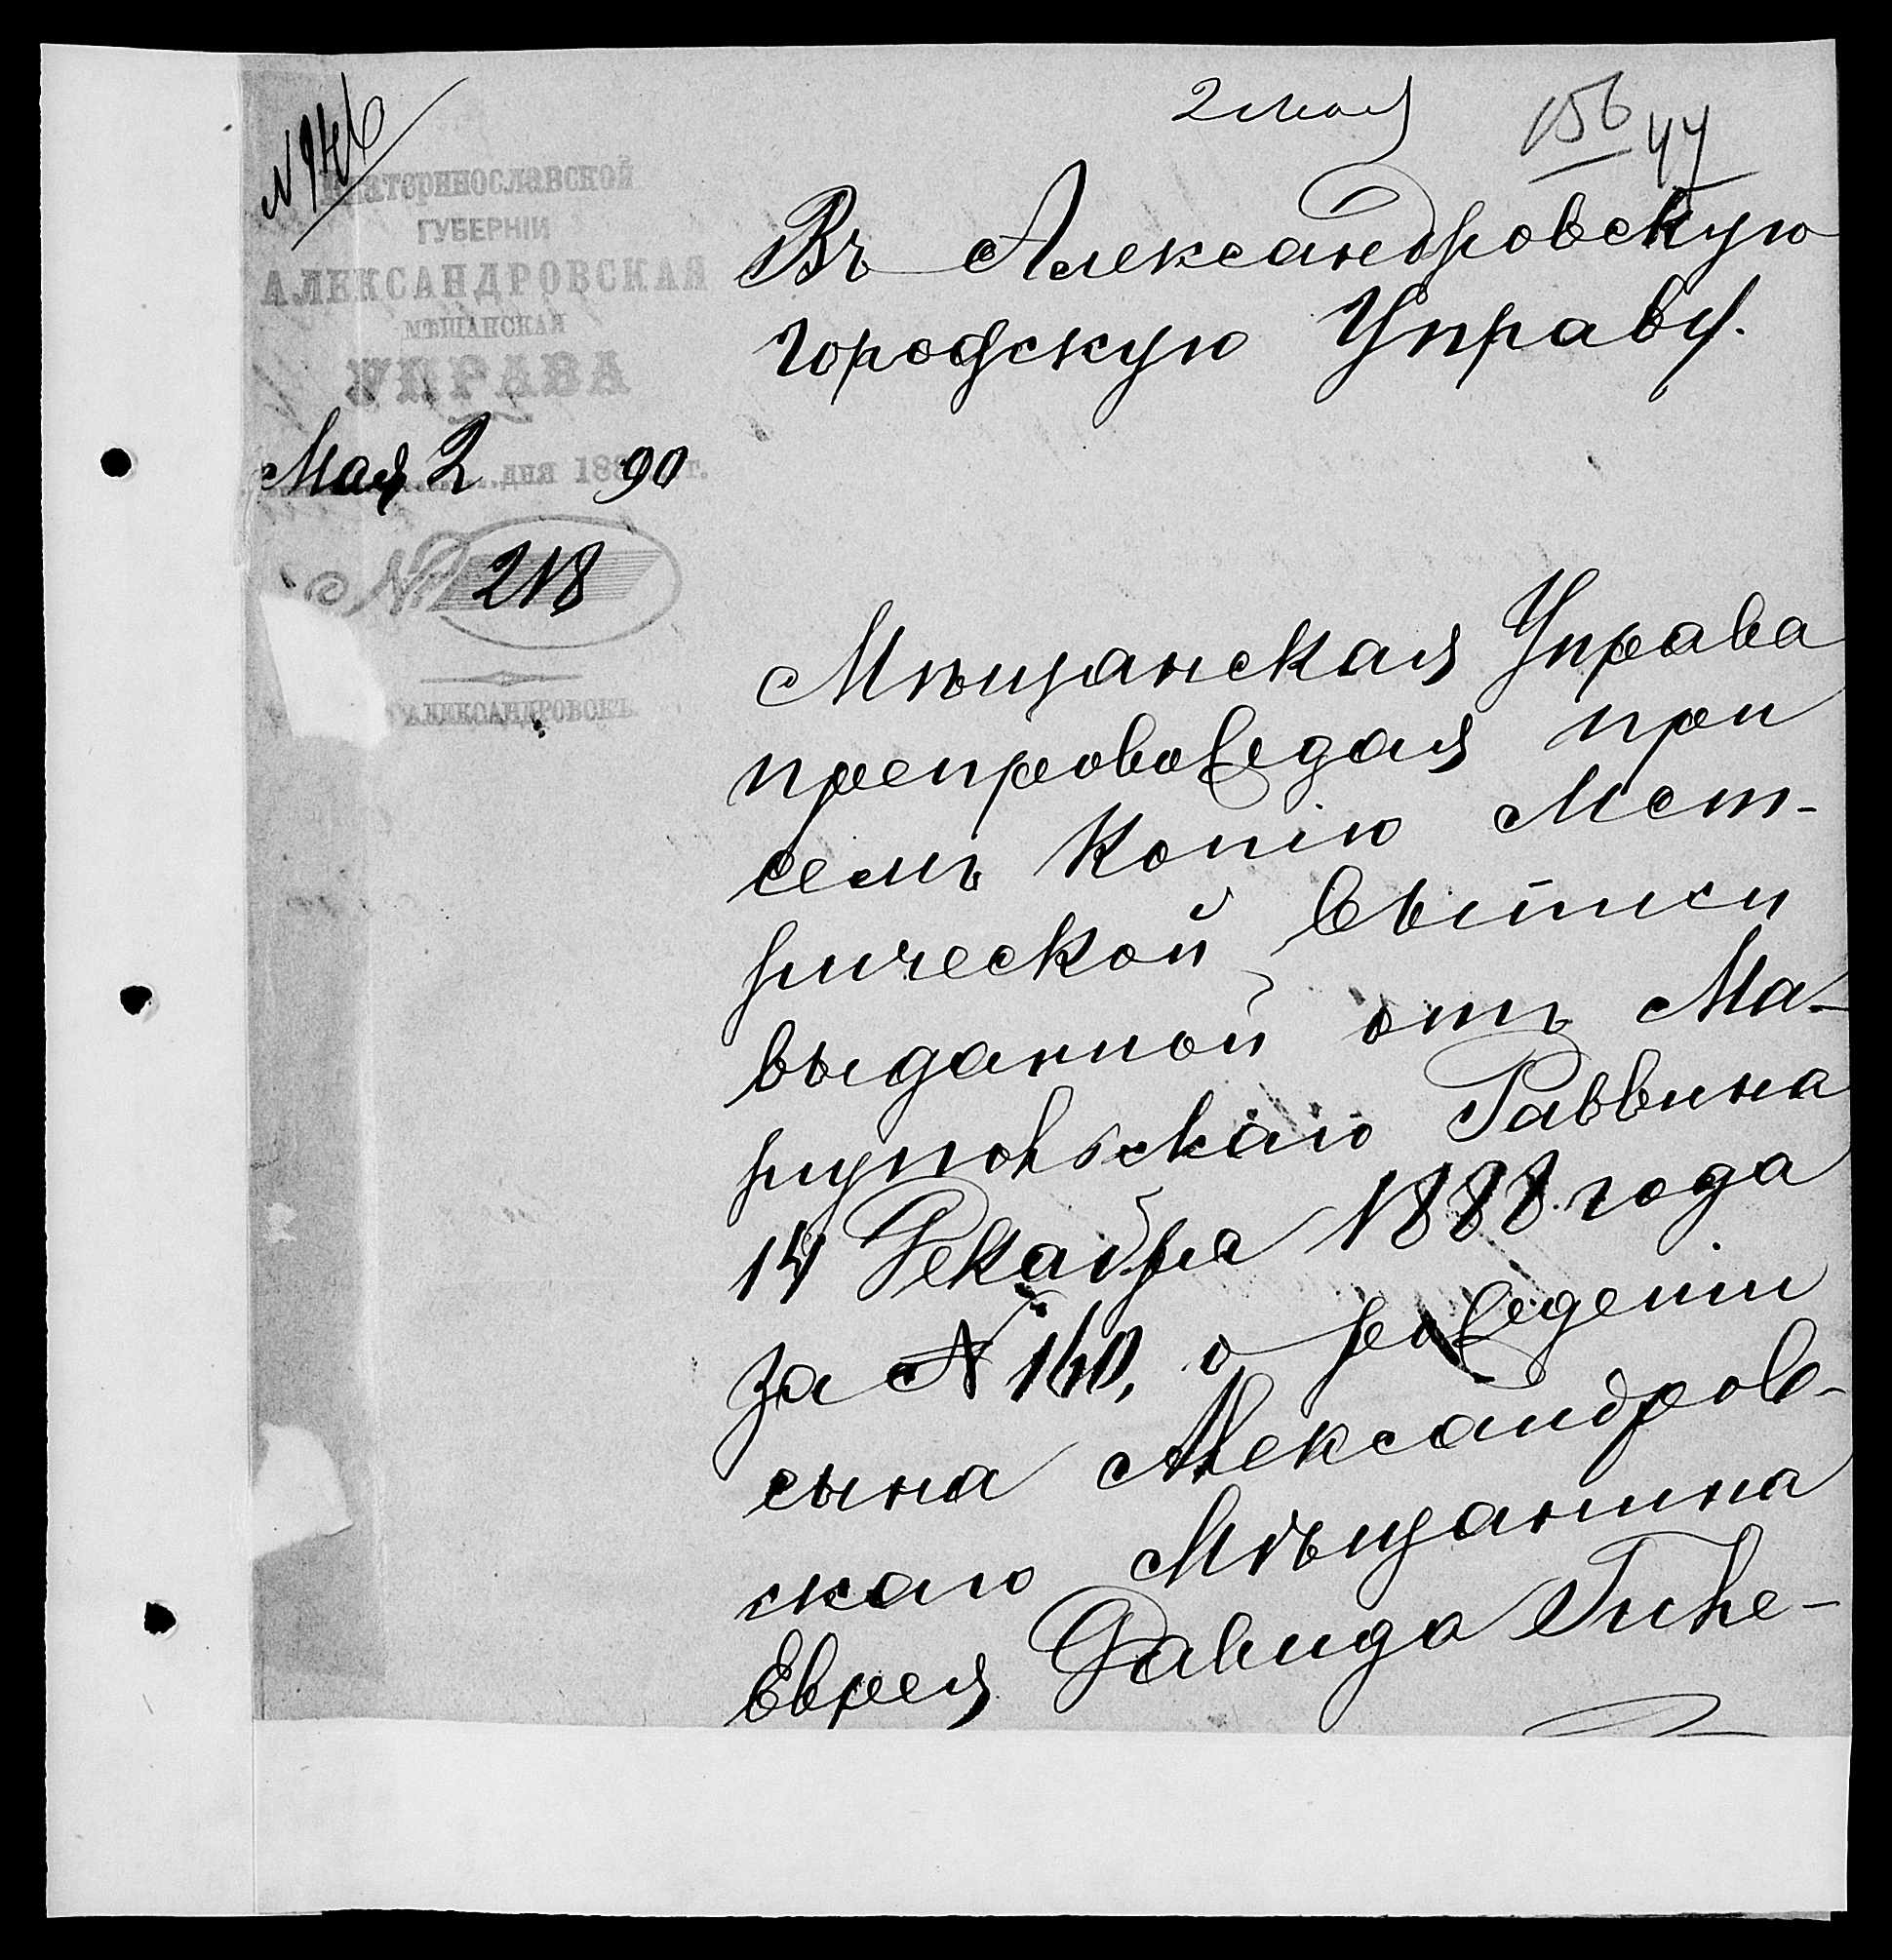 2 мая
156
44
Екатеринославской
ГУБЕРНІИ
АЛЕКСАНДРОВСКАЯ
МѢЩАНСКАЯ
УПРАВА
Мая 2 дня 1890 г.
№ 218
АЛЕКСАНДРОВСКЪ.
Въ Александровскую
Городскую Управу.
Мѣщанская Управа
препровождая при
семъ копію Мет-
рической выписи
выданной отъ Ма-
ріупольскаго Раввина
14 Декабря 1888 года
за № 140, о рожденіи
сына Александров-
скаго Мѣщанина
Еврея Давида